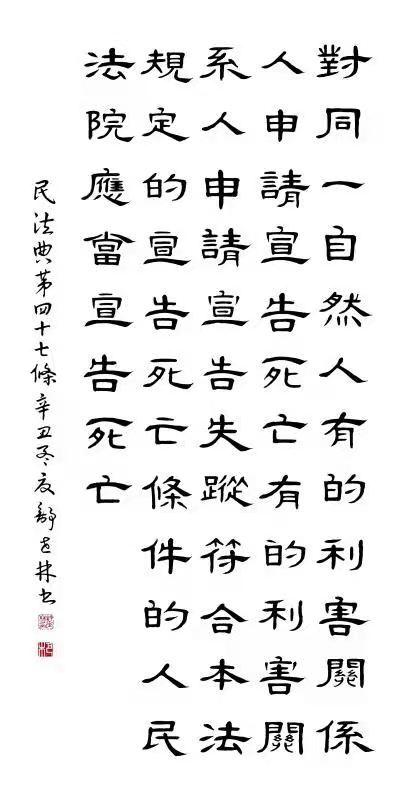 對同一自然人有的利害關係
人申請宣告死亡有的利害關
系人申請宣告失蹤符合本法
規定的宣告死亡條件的人民
法院應當宣告死亡
民法典第四十七條辛丑冬 舒 林书